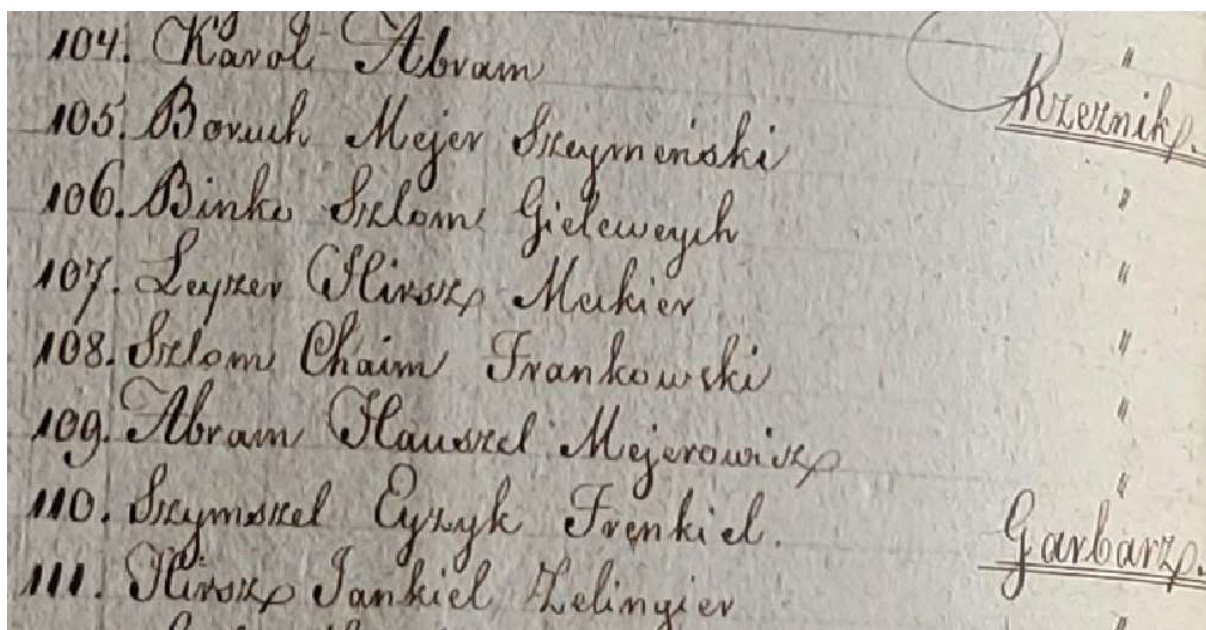 104. Karol Abram "
105. Boruch Mejer Szeymeński Krzeznik.
106. Binke Szlom Gieleweych "
107. Leyzer Hirsz Mekier "
108. Szlom Chaim Frankowski "
109. Abram Hauszel Mejerowisz "
110. Szymszel Eyzyk Frenkiel. "
111. Hirsz Jankiel Zelingier Garbarz.